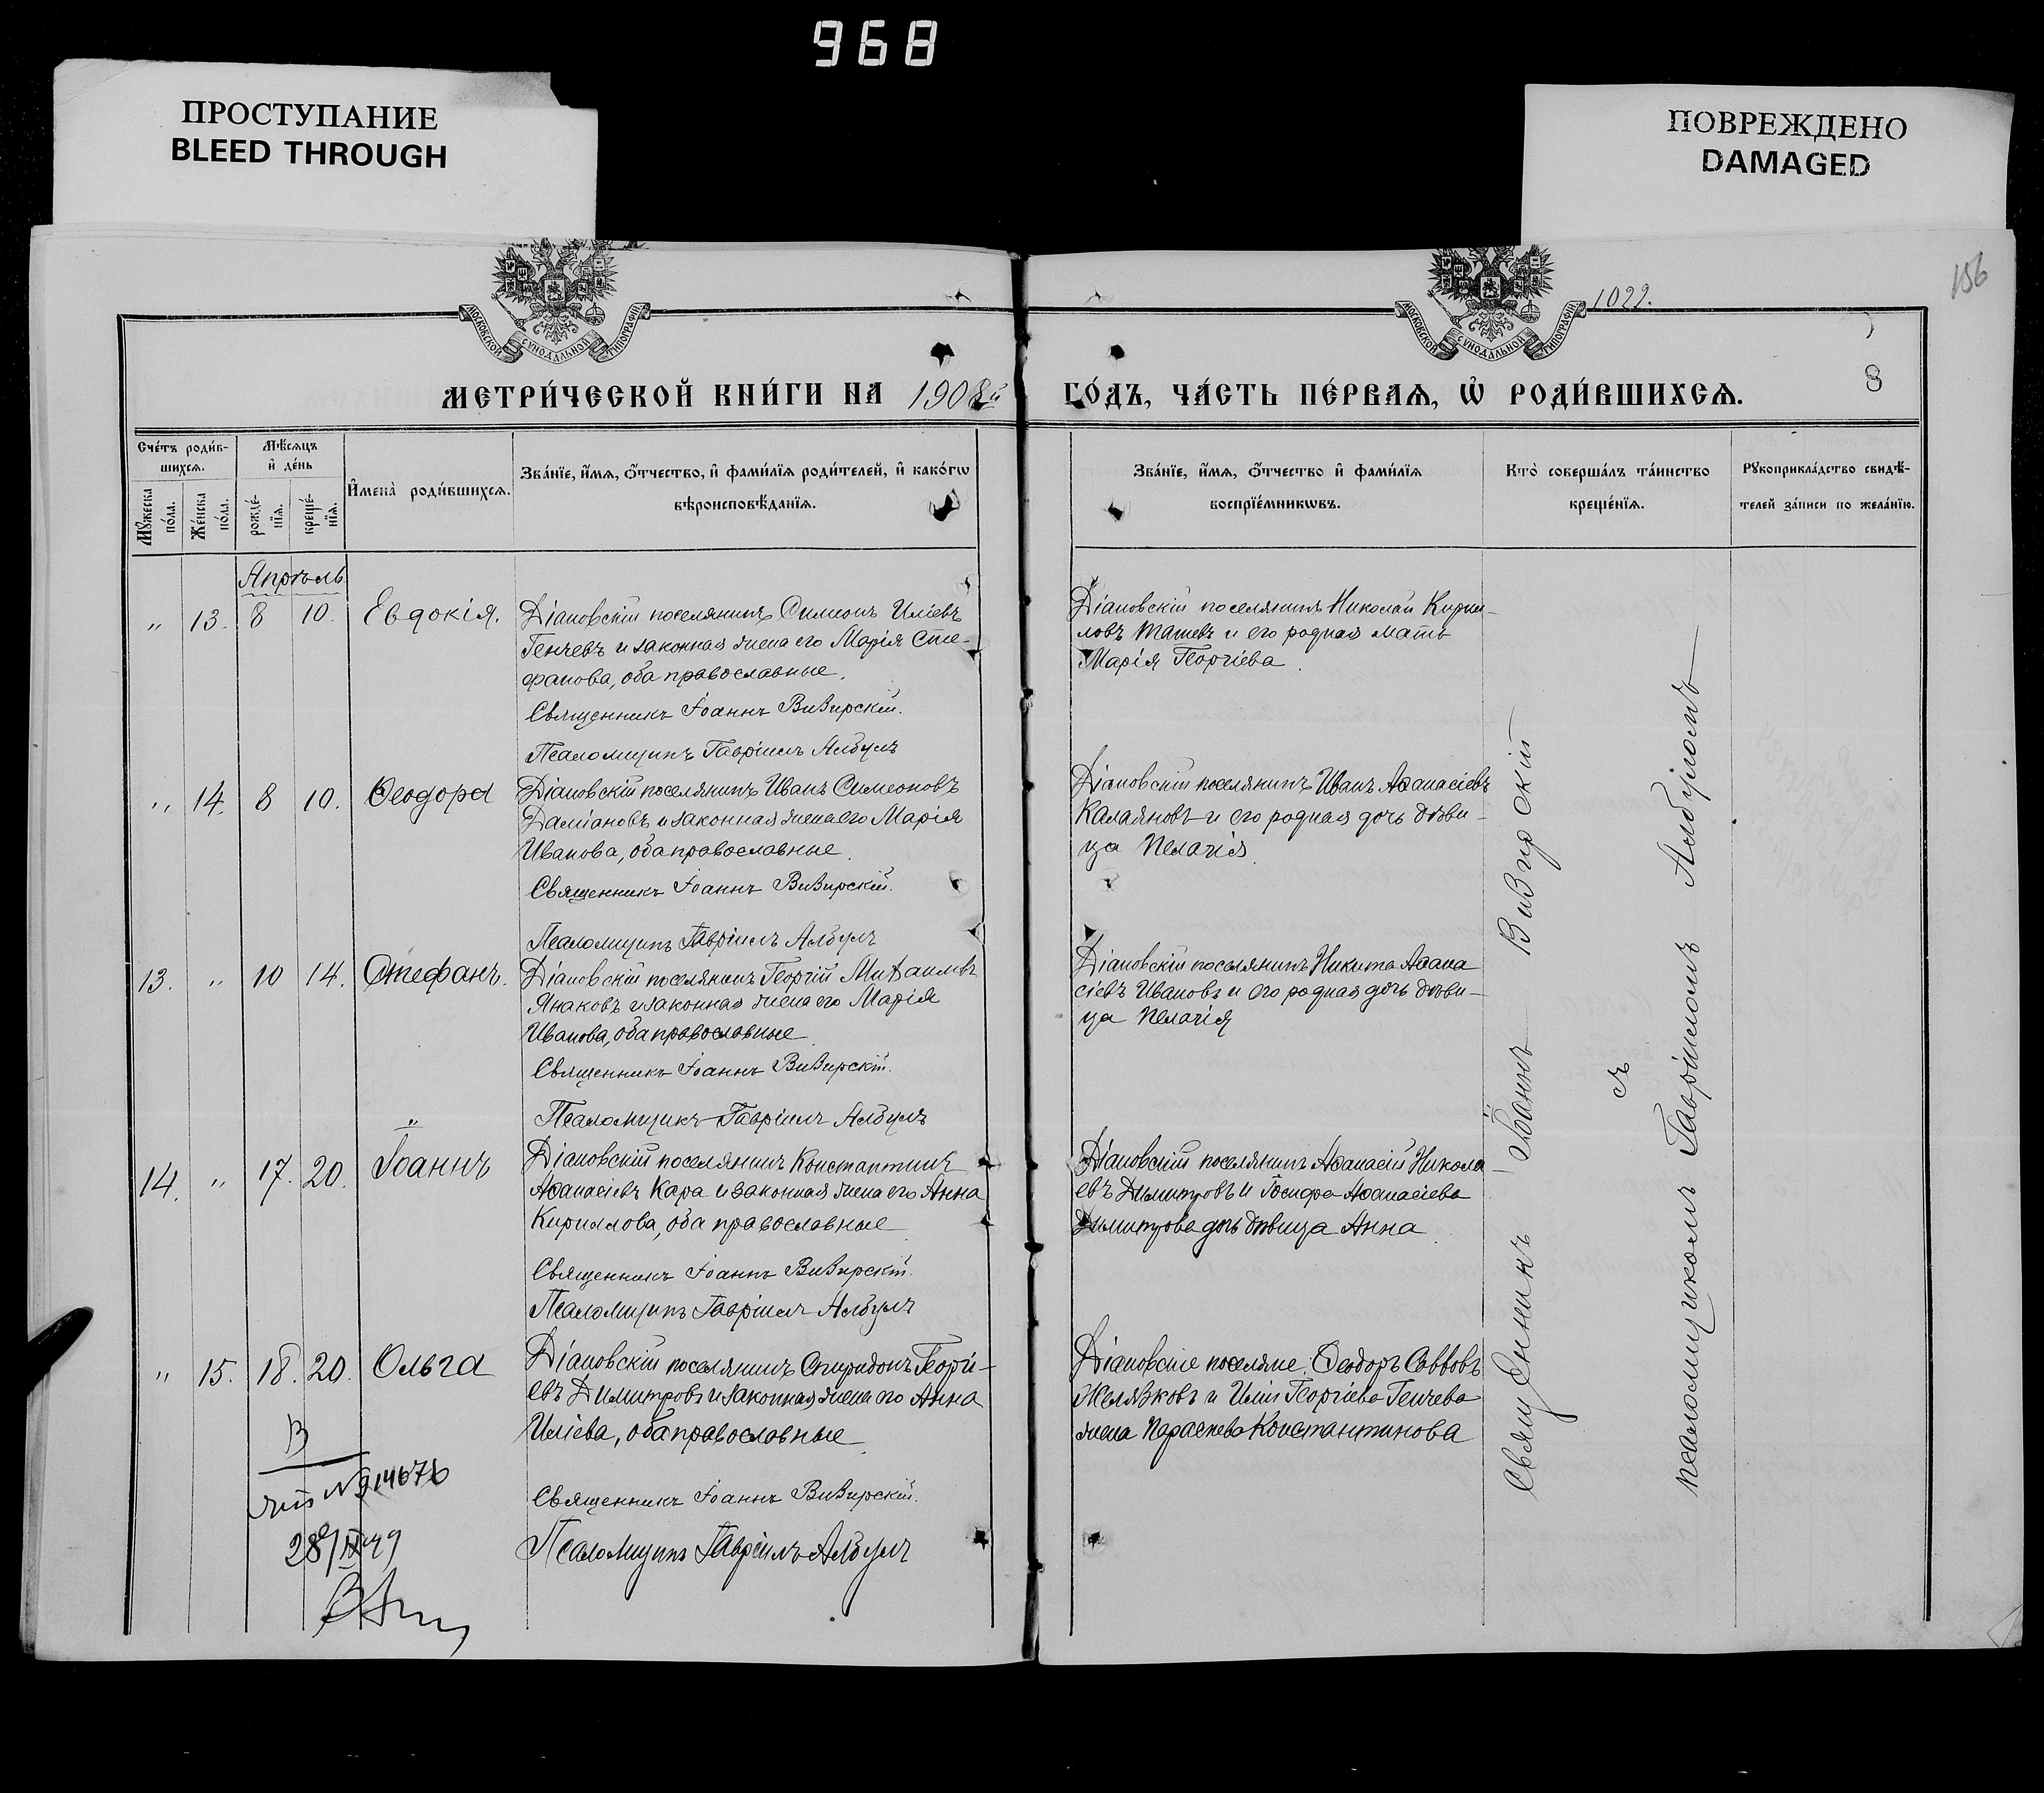 968
ПРОСТУПАНИЕ
BLEED THROUGH
ПОВРЕЖДЕНО
DAMAGED
156
1022.
МОСКОВСКОЙ СѴНОДАЛЬНОЙ ТИПОГРАФІИ.
МОСКОВСКОЙ СѴНОДАЛЬНОЙ ТИПОГРАФІИ.
8
МЕТРИ́ЧЕСКОЙ КНИ́ГИ НА 1908й ГО́ДЪ, ЧА́СТЬ ПЕ́РВАѦ, Ѡ҆ РОДИ́ВШИХСѦ.
Сче́тъ роди́в-
шихсѧ.
Мѣ́сѧцъ
и҆ де́нь
Мꙋ́жеска
по́ла.
Же́нска
по́ла.
рожде́-
нїѧ.
креще́-
нїѧ.
И҆мена̀ роди́вшихсѧ.
Зва́нїе, и҆́мѧ, ѻ҆́тчество, и҆ фами́лїѧ роди́телей, и҆ како́гѡ
вѣроисповѣ́данїѧ.
Зва́нїе, и҆́мѧ, ѻ҆́тчество и҆ фами́лїѧ
воспрїе́мникѡвъ.
Кто̀ соверша́лъ та́инство
креще́нїѧ.
Рꙋкоприкла́дство свидѣ́-
телей за́писи по жела́нїю.
Апрѣль
„ 13. 8 10. Евдокія.
Діановскій поселянинъ Симеонъ Иліевъ
Генчевъ и законная жена его Марія Сте-
фанова, оба православные.
Священникъ Іоаннъ Визирскій.
Псаломщикъ Гавріилъ Албулъ
Діановскій поселянинъ Николай Кирил-
ловъ Ташевъ и его родная мать
Марія Георгіева.
„ 14. 8 10. Ѳеодора
Діановскій поселянинъ Иванъ Симеоновъ
Даміановъ и законная жена его Марія
Иванова, оба православные.
Священникъ Іоаннъ Визирскій.
Псаломщикъ Гавріилъ Албулъ
Діановскій поселянинъ Иванъ Аѳанасіевъ
Калаяновъ и его родная дочь дѣви-
ца Пелагія.
13. „ 10 14. Стефанъ.
Діановскій поселянинъ Георгій Михаиловъ
Янаковъ и законная жена его Марія
Иванова, оба православные
Священникъ Іоаннъ Визирскій.
Псаломщикъ Гавріилъ Албулъ
Діановскій поселянинъ Никита Аѳана
сіевъ Ивановъ и его родная дочь дѣви-
ца Пелагія
14. „ 17. 20. Іоаннъ
Діановскій поселянинъ Константинъ
Аѳанасіевъ Кара и законная жена его Анна
Кириллова, оба православные
Священникъ Іоаннъ Визирскій.
Псаломщикъ Гавріилъ Албулъ
Діановскій поселянинъ Аѳанасій Никола
евъ Димитровъ и Іосифа Аѳанасіева
Димитрова дочь дѣвица Анна.
„ 15. 18. 20. Ольга
Діановскій поселянинъ Спиридонъ Георгі-
евъ Димитровъ и законная жена его Анна
Иліева, оба православные
Священникъ Іоаннъ Визирскій.
Псаломщикъ Гавріилъ Албулъ
Діановскіе поселяне: Ѳеодоръ Савовъ
Желязковъ и Иліи Георгіева Генчева
жена Параскева Константинова
Священникъ Іоаннъ Визирскій
съ
псаломщикомъ Гавріиломъ Албуломъ
В